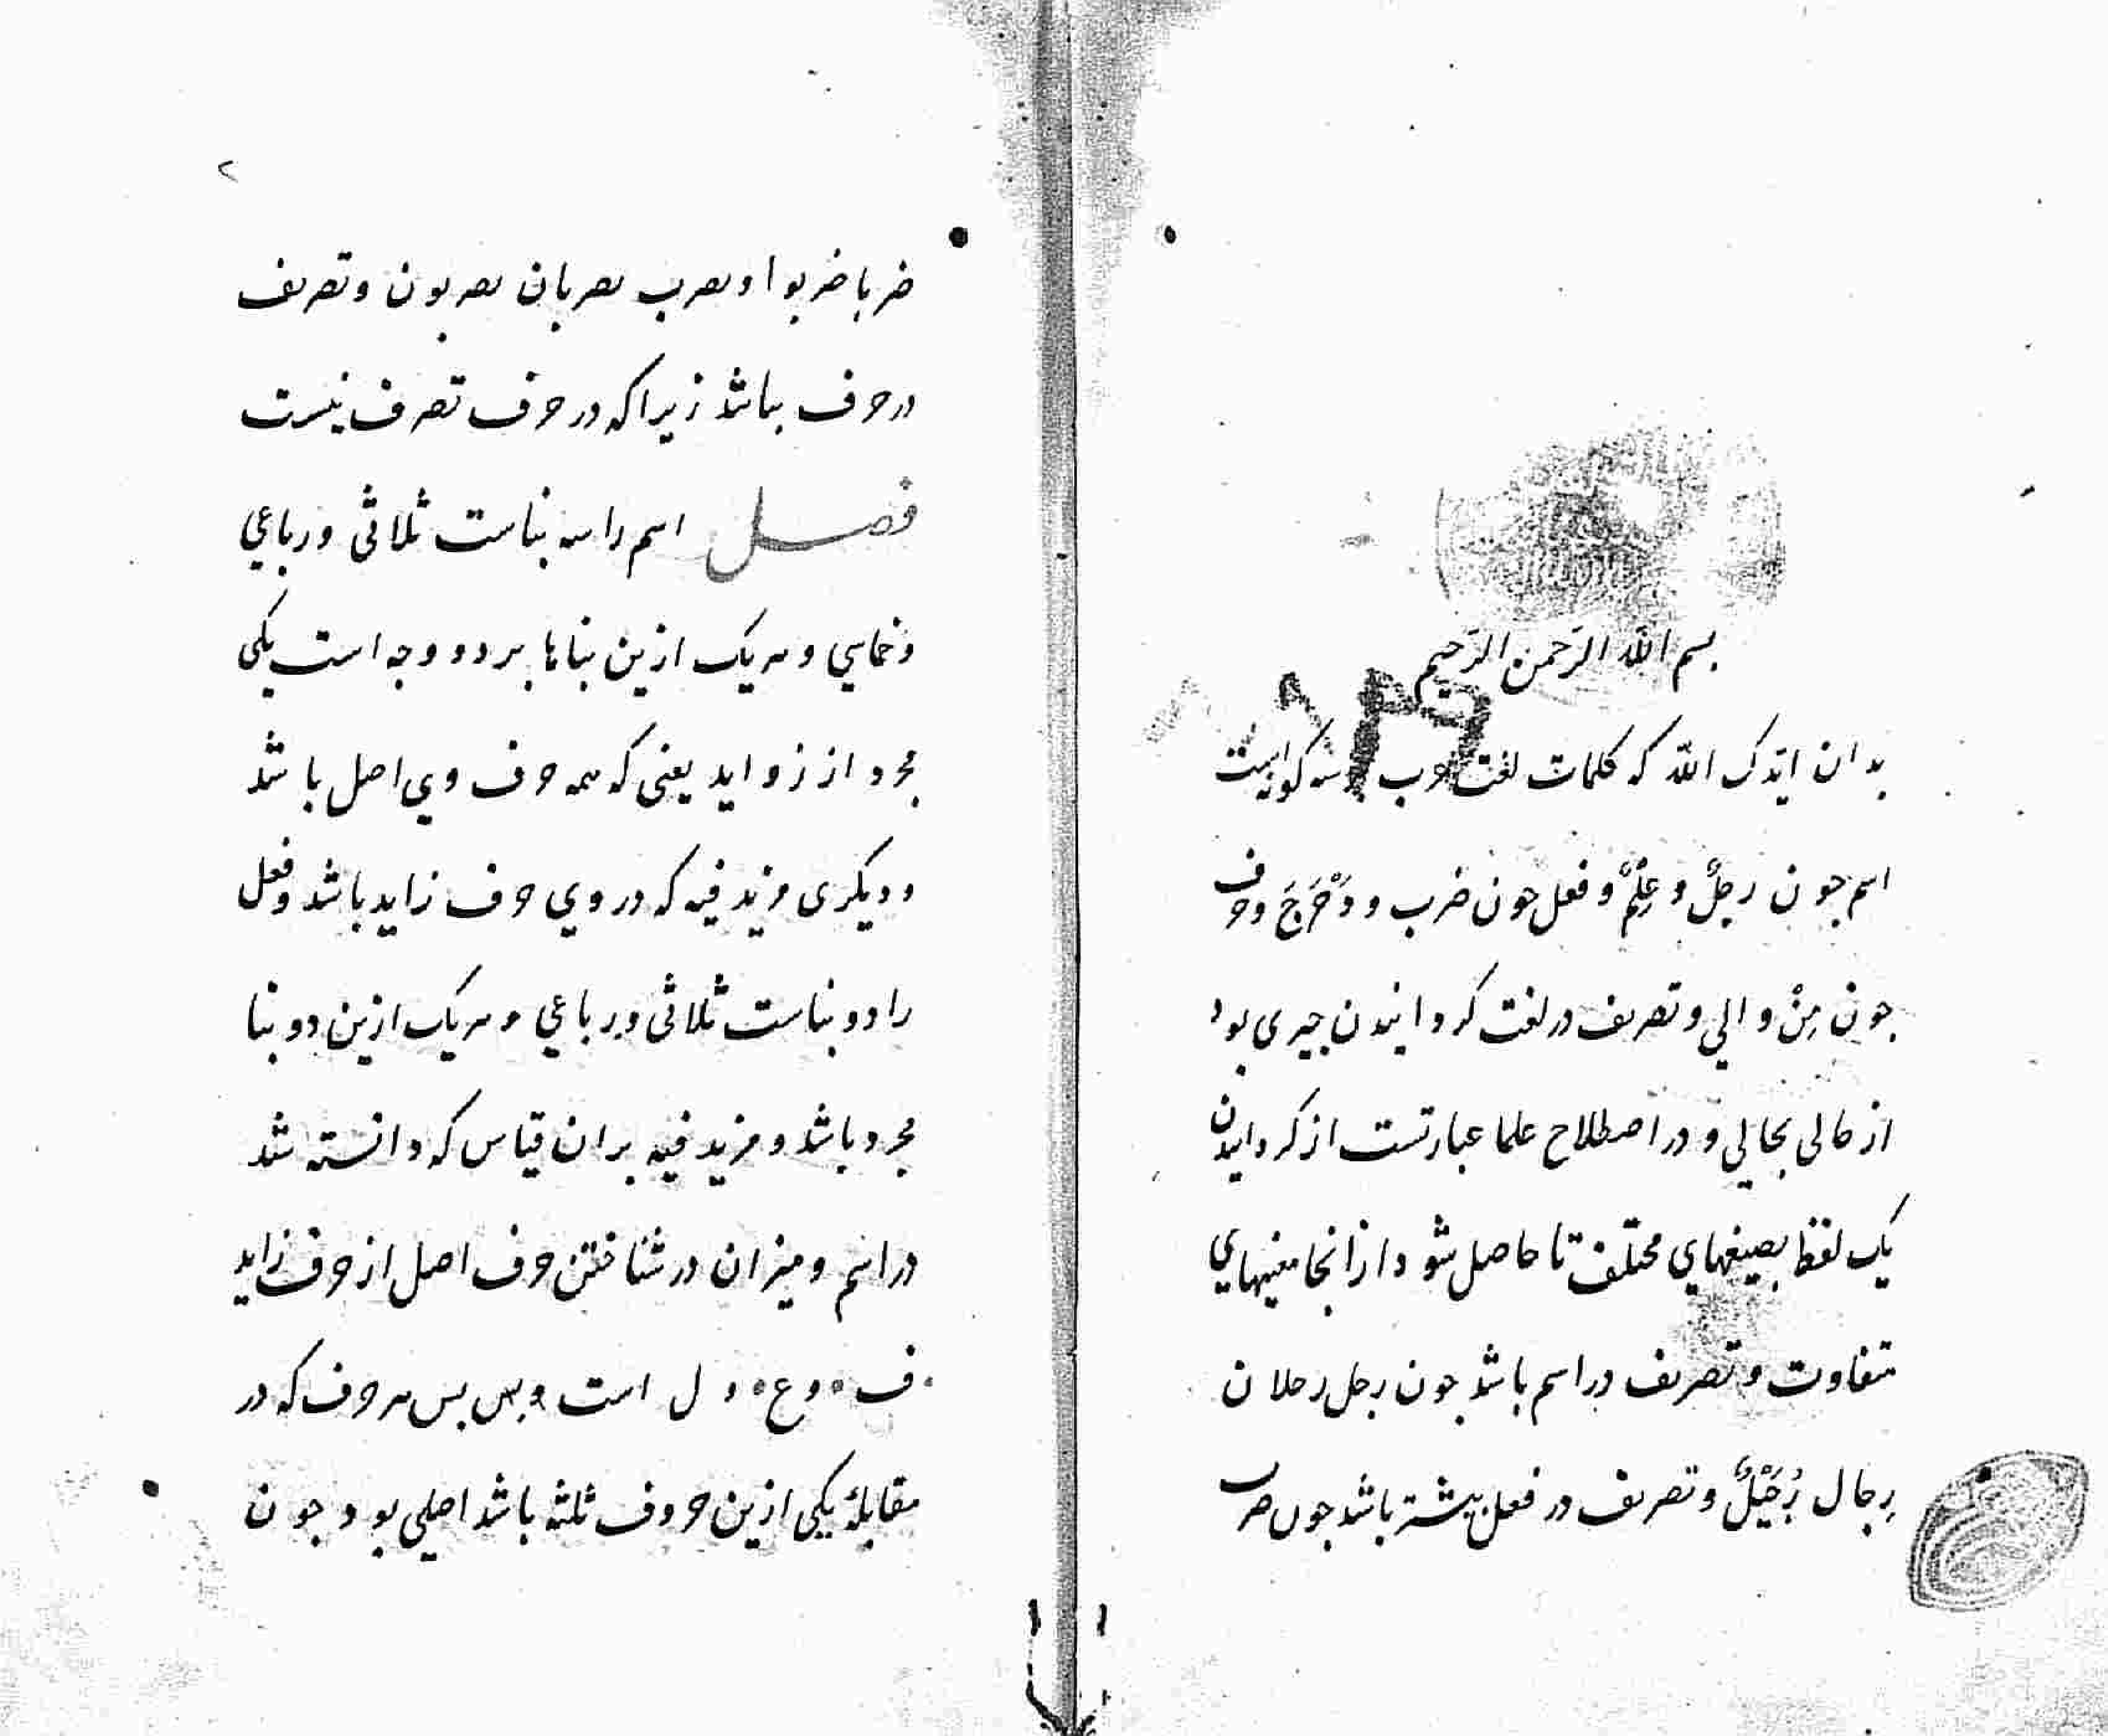 بسم الله الرحمن الرحیم
بدان ایدک الله که کلمات لغت عرب بر سه گونه است
اسم جون رجلٌ و عِلْمٌ و فعل جون ضرب و دَحْرَجَ و حرف
جون مِنْ و الي و تصریف در لغت کردانیدن چیزی بود
از حالی بحالي و در اصطلاح علما عبارتست از کردانیدن
یک لفظ بصیغهاي مختلف تا حاصل شود ازانجا معنیهاي
متفاوت و تصریف در اسم باشد جون رجل رجلان
رِجال رُجَیْلٌ و تصریف در فعل بیشتر باشد جون ضرب
ضربا ضربوا و یضرب یضربان یضربون و تصریف
در حرف نباشد زیرا که در حرف تصرف نیست
فصل اسم را سه بناست ثلاثی و رباعي
و خماسي و هریک ازین بناها بر دو وجه است یکی
مجرد از زواید یعنی که همه حروف وي اصل باشد
و دیکری مزید فیه که در وي حرف زاید باشد و فعل
را دو بناست ثلاثی و رباعي و هریک ازین دو بنا
مجرد باشد و مزید فیه بران قیاس که دانسته شد
در اسم و میزان در شناختن حروف اصل از حروف زاید
ف و ع و ل است و بس بس هر حرف که در
مقابلهٔ یکی ازین حروف ثلثه باشد اصلي بود جون